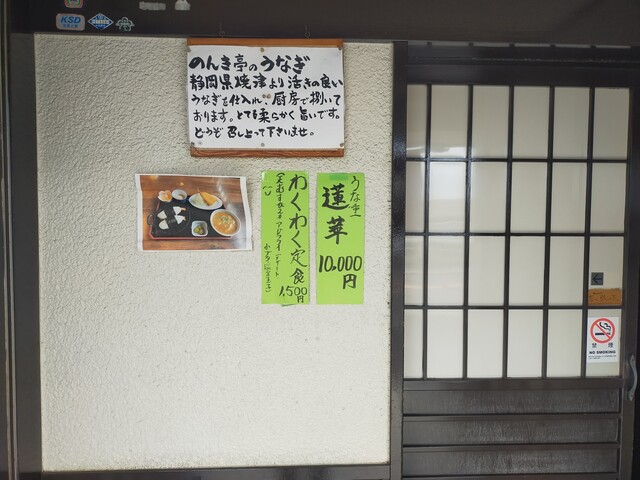 KSD
のんき亭のうなぎ
静岡県焼津より活きの良い
うなぎを仕入れ、厨房で捌いて
おります。とても柔らかく旨いです。
どうぞ召し上って下さいませ。
うな重
蓮華
10,000
円
わくわく定食
1,500
円
禁煙
NO SMOKING